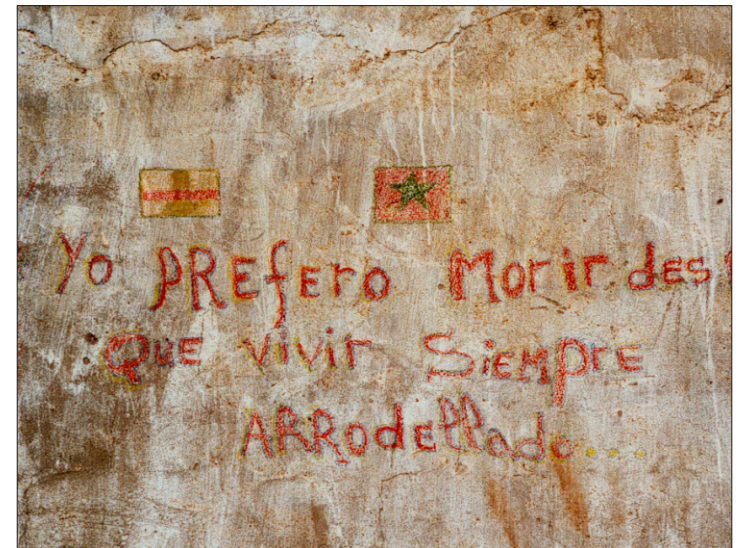 Yo PREfEro Morir des
QUE vivir SiEMprE
ARRodellado....